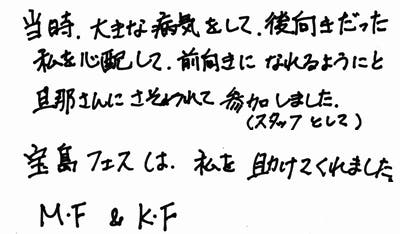 当時、大きな病気をして、後向きだった
私を心配して、前向きになれるようにと
旦那さんにさそわれて参加しました。
(スタッフとして)
宝島フェスは、私を助けてくれました。
M.F & K.F